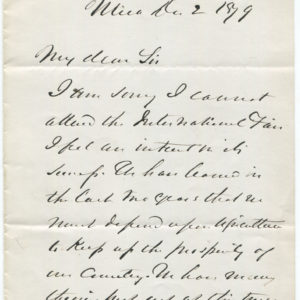 Utica Dec 2 1879
My dear Sir
I am sorry I cannot
attend the International Fair
I feel an interest in its
success. We have learned in
the last few years that we
must depend upon Agriculture
to keep up the prosperity of
our Country. We have many
things just at this time